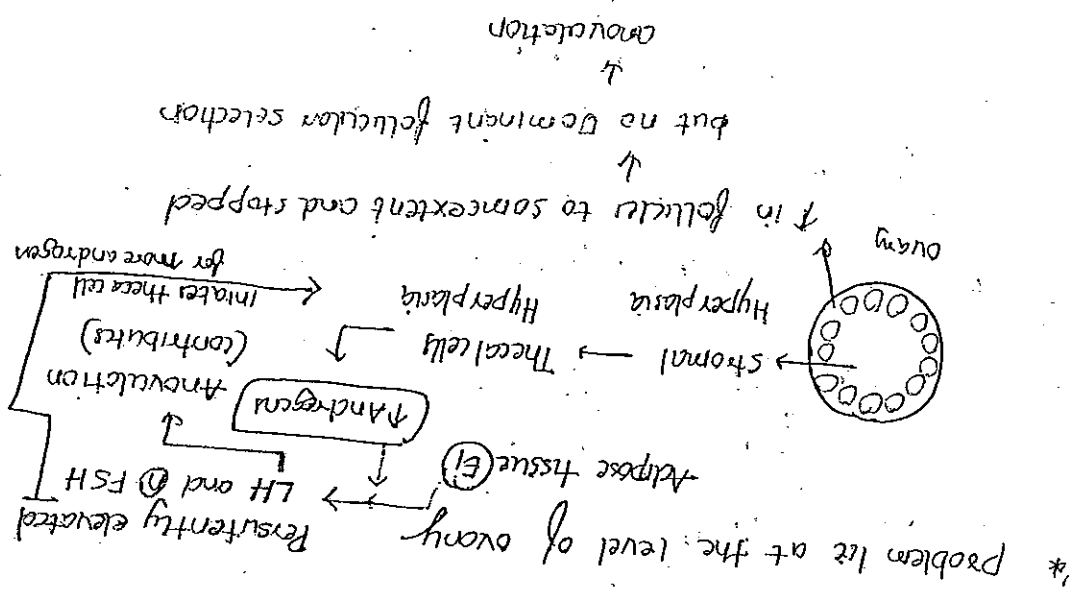 * problem lie at the level of ovary
Persistently elevated
LH and (n) FSH
Adipose tissue (E1)
↑Androgens
Anovulation
(contributes)
Stromal → Thecal cells
Hyperplasia Hyperplasia
Intates theca cell
for more androgen
ovary
↑ in follicles to some extent and stopped
↓
but no Dominent follicular selection
↓
anovulation